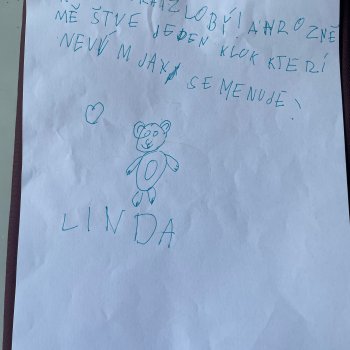 ZLOBÝ! A HROZNĚ
MĚ ŠTVE JEDEN KLUK KTERÍ
NEVÝM JAK SE MENUJE!
LINDA